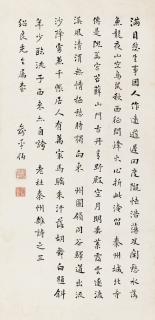 滿目悲生事因人作遠遊遲迴度隴怯浩蕩及關愁水落
魚龍夜山空鳥鼠秋西征問烽火心折此淹留 秦州城北寺
傳是隗囂宮苔蘚山門古丹青野殿空月明垂葉露雲逐渡
溪風清渭無情極愁時獨向東 州圖領同谷驛道出流
沙降虜兼千帳居人有萬家馬驕朱汗落胡舞白題斜
年少臨洮子西來亦自誇 老杜秦州雜詩之三
紹良先生屬書 俞平伯